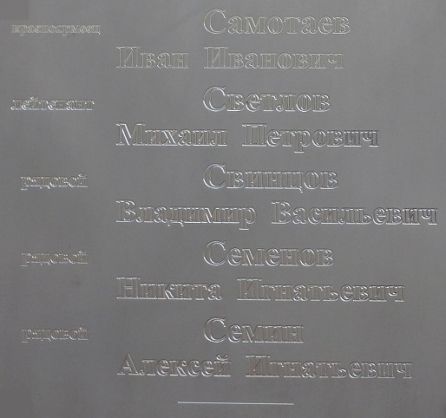 красноармеец Самотаев
Иван Иванович
лейтенант Светлов
Михаил Петрович
рядовой Свинцов
Владимир Васильевич
рядовой Семенов
Никита Игнатьевич
рядовой Семин
Алексей Игнатьевич